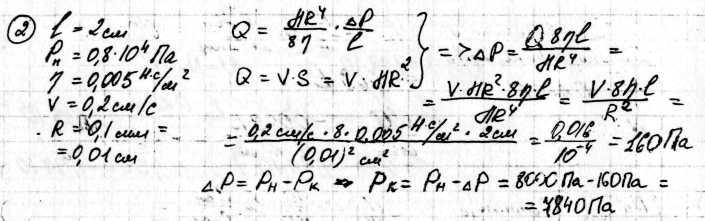 ② l = 2 см
Pн = 0,8·10⁴ Па
η = 0,005 Н·с/м²
V = 0,2 см/с
R = 0,1 мм =
= 0,01 см
Q = πR⁴/8η · ΔP/l
Q = V·S = V·πR²
=> ΔP = Q8ηl/πR⁴ =
= V·πR²·8η·l/πR⁴ = V·8η·l/R² =
= 0,2 см/с · 8 · 0,005 Н·с/м² · 2 см/(0,01)² см² = 0,016/10⁻⁴ = 160 Па
ΔP = Pн - Pк => Pк = Pн - ΔP = 8000 Па - 160 Па =
= 7840 Па